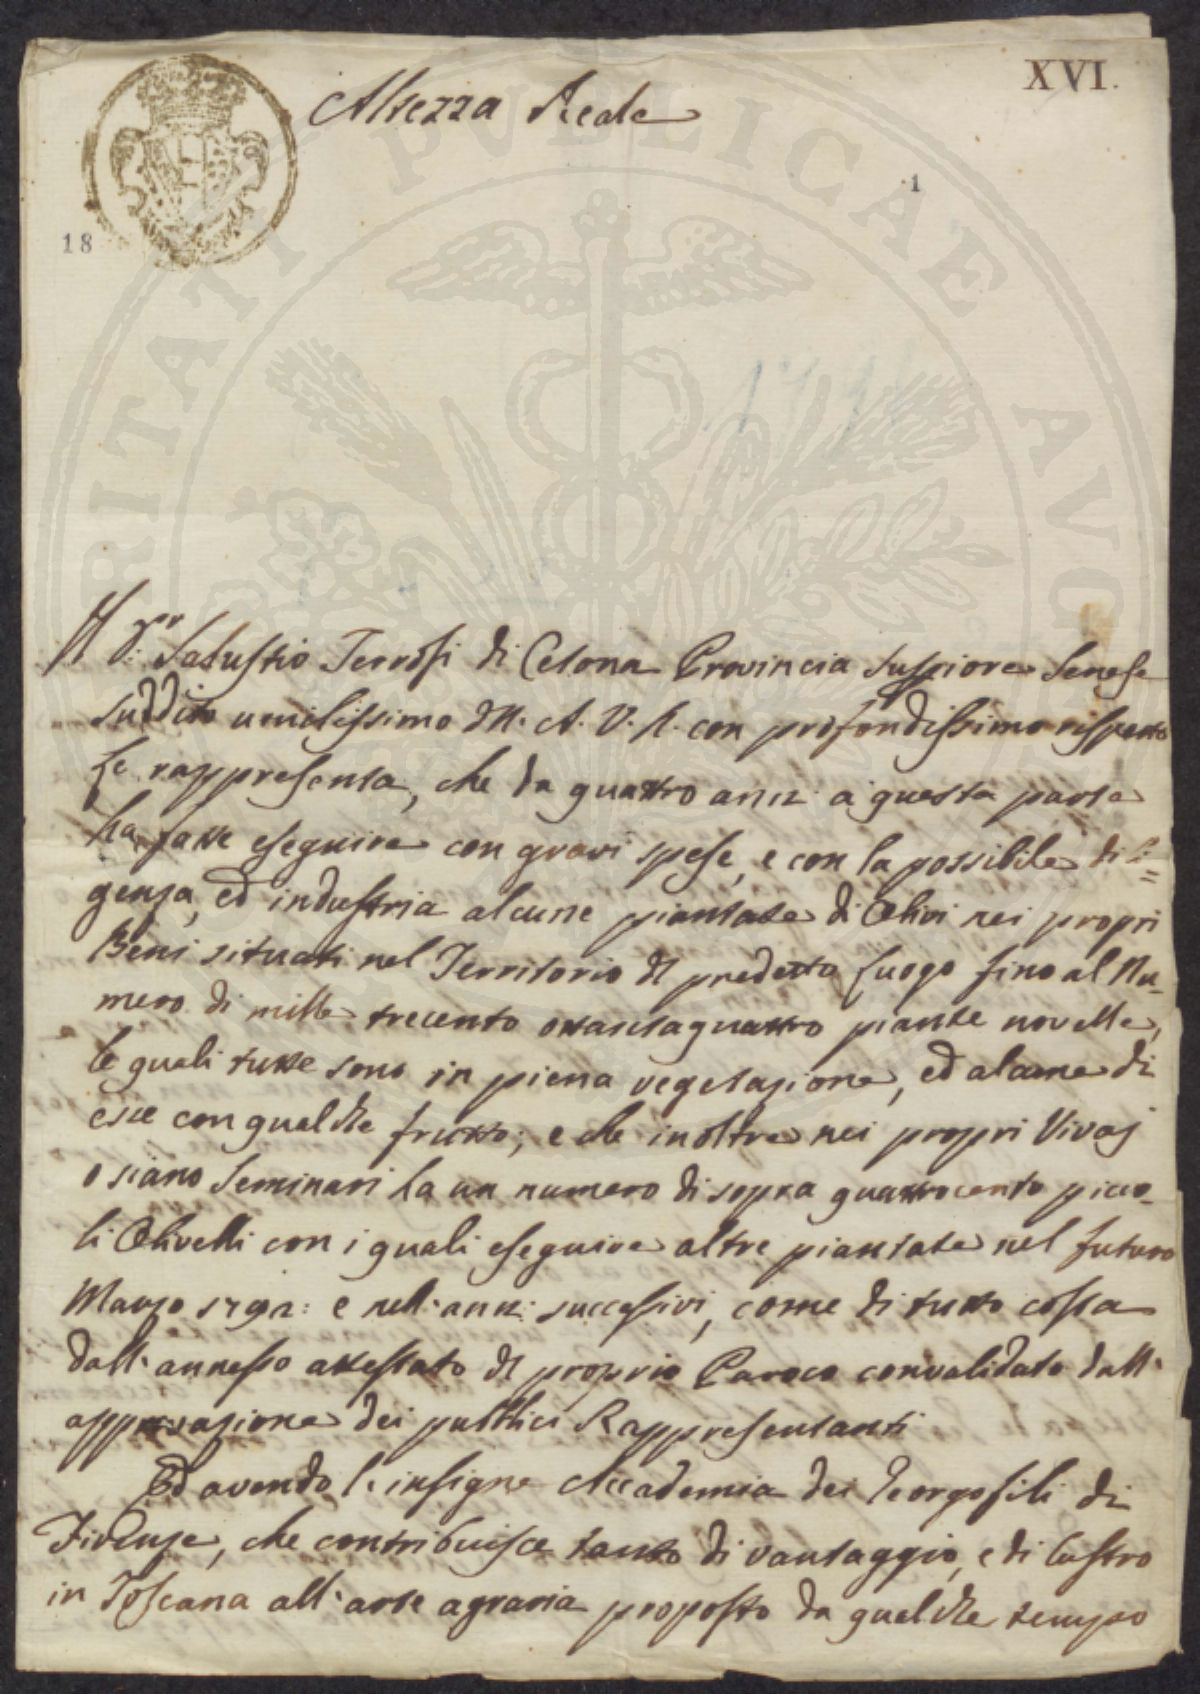 XVI.
Altezza Reale
1
18
Il Sr. Salustio Terrosi di Cetona Provincia Superiore Senese
Suddito umilissimo dll. A. V. R. con profondissimo rispetto
Le rappresenta, che da quattro anni a questa parte
ha fatte eseguire con gravi spese, e con la possibile dili=
genza, ed industria alcune piantate di Olivi nei propri
Beni situati nel Territorio dl predetto Luogo fino al Nu-
mero di mille trecento ottantaquattro piante novelle,
le quali tutte sono in piena vegetazione, ed alcune di
esse con qualche frutto; e che inoltre nei propri Vivaj
o siano Seminari ha un numero di sopra quattrocento picco-
li Olivelli con i quali eseguire altre piantate nel futuro
Marzo 1792: e nell'anni successivi, come di tutto costa
dall'annesso attestato dl proprio Paroco convalidato dall'
approvazione dei pubblici Rappresentanti
Ed avendo l'insigne Accademia dei Georgofili di
Firenze, che contribuisce tanto di vantaggio, e di lustro
in Toscana all'arte agraria proposto da qualche tempo